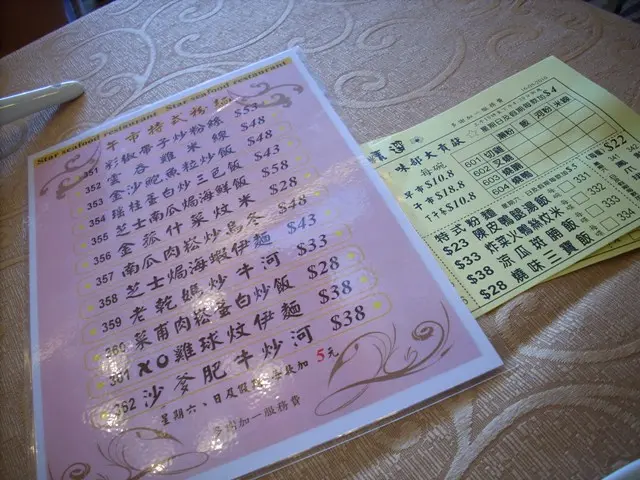 Star seafood restaurant Star seafood restaurant
351 彩椒帶子炒粉絲 $53
352 雲吞雞米線 $48
353 金沙鮑魚粒炒飯 $48
354 瑤柱蛋白炒三色飯 $43
355 芝士南瓜焗海鮮飯 $58
356 金菰什菜炆米 $28
357 南瓜肉崧炒烏冬 $48
358 芝士焗海蝦伊麵 $43
359 老乾媽炒牛河 $33
360 菜甫肉崧蛋白炒飯 $28
361 XO雞球炆伊麵 $38
362 沙爹肥牛炒河 $38
星期六、日及假期 加 5元
另加一服務費
味部大賣價
每碗
早市 $10.8
午市 $18.8
下午茶 $10.8
另加一服務費
601 切雞
602 叉燒
603 燒鴨
604
粉 飯 河粉 米線
$22
特式粉麵
$23 陳皮鴨腿湯飯 331
$33 炸菜火鴨絲炆米 332
$38 涼瓜甜鵝飯 333
$28 燒味三寶飯 334
341